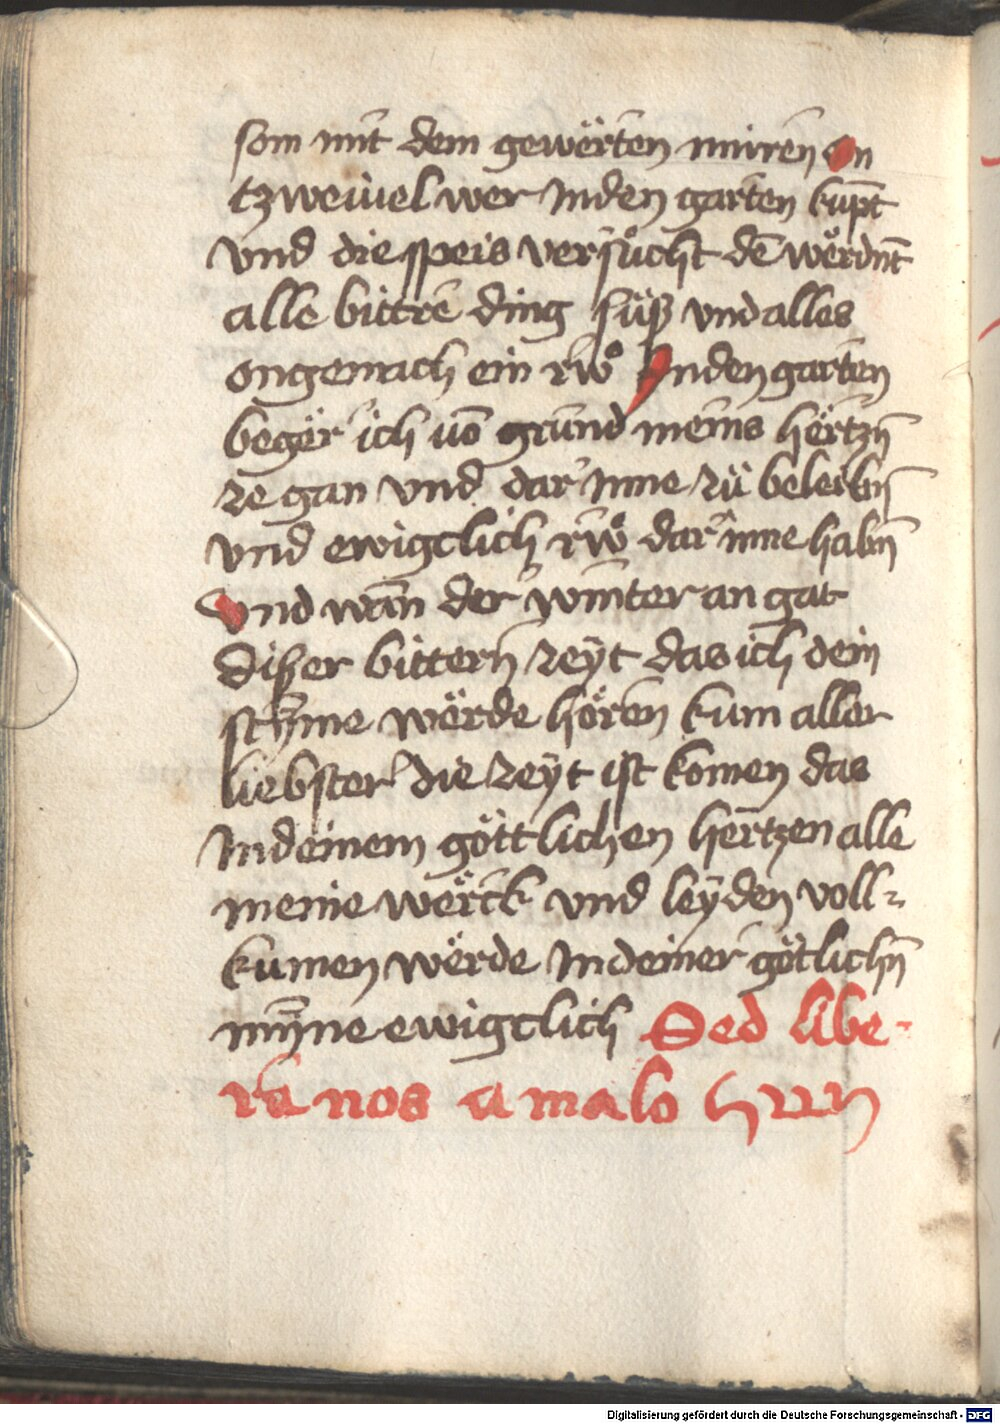 som mit dem gewërten mirren on
tzweiuel wer Inden garten kumpt
vnd die speis versůcht dē wërdnt
alle bittrē ding süß vnd alles
ongemach ein rẘ Inden garten
begër ich uō grund meins hërtzn̄
ze gan vnd dar Inne zů beleibn̄
vnd ewigclich rẘ dar inne habn̄
vnd wān der winter an gat
dißer bittern zeÿt das ich dein
stÿme wërde hören kum aller
liebster die zeÿt ist komen das
In deinem göttlichen hertzen alle
meine wërck vnd leÿden voll⸗
kumen wërde In deiner götlichn̄
mÿne ewigclich Sed libe-
ra nos a malo
Digitalisierung gefördert durch die Deutsche Forschungsgemeinschaft - DFG